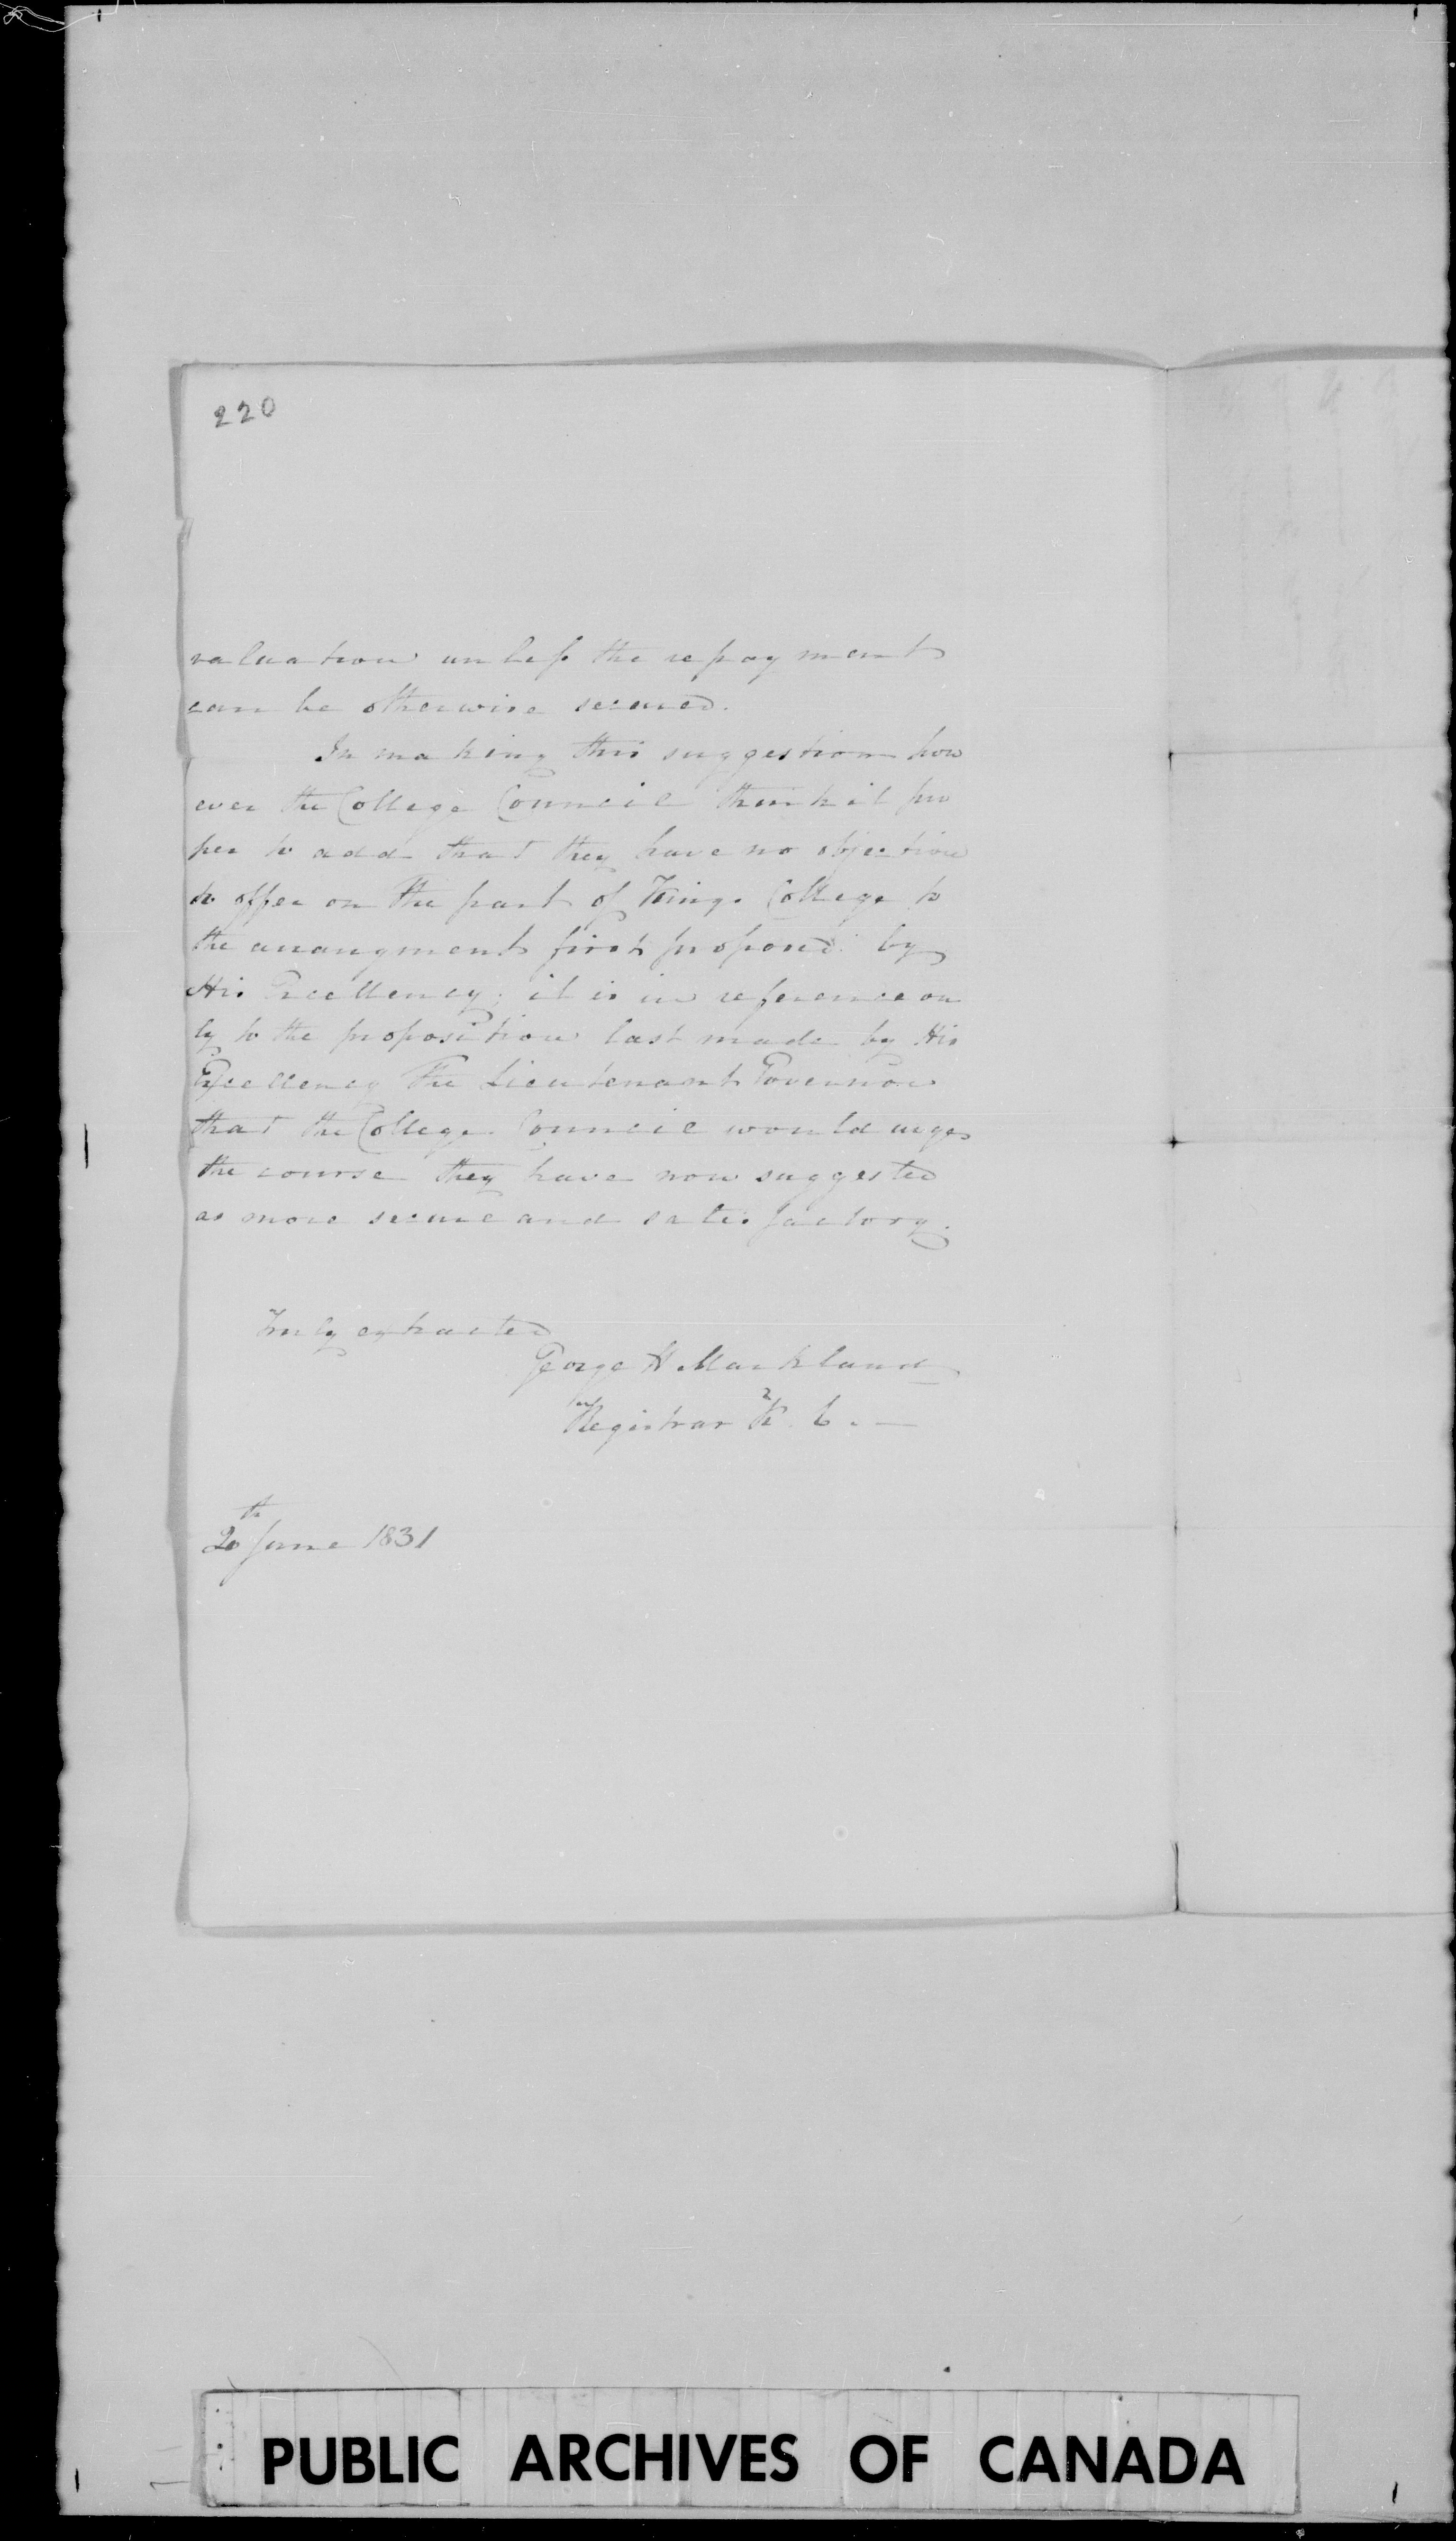 220
valuation unless the repayment
can be otherwise secured.
In making this suggestion how
ever the College Council think it pro
per to add that they have no objection
to offer on the part of Kings College to
the arrangment first proposed by
His Excellency; it is in reference on
ly to the proposition last made by His
Excellency The Lieutenant Governor
that the College Council would urge
the course they have now suggested
as more secure and satisfactory.
Truly extracted
George H Markland
Registrar K. C. —
20th June 1831
PUBLIC ARCHIVES OF CANADA